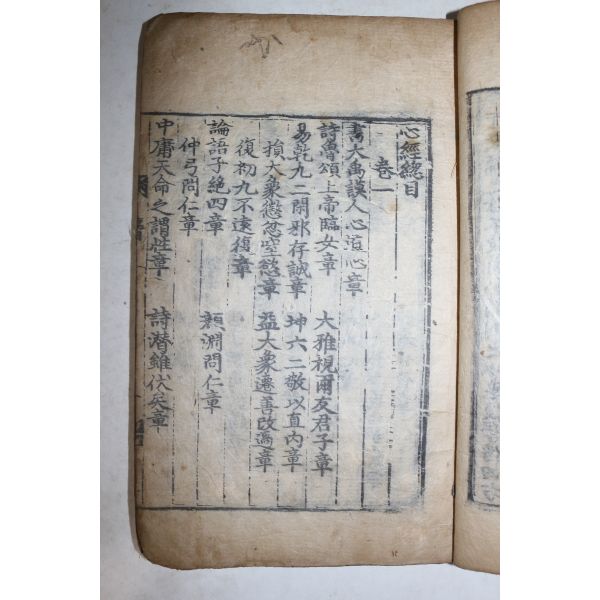 心經總目
卷一
書大禹謨人心道心章
詩魯頌上帝臨女章 大雅視爾友君子章
易乾九二閑邪存誠章 坤六二敬以直內章
損大象懲忿窒慾章 益大象遷善改過章
復初九不遠復章
論語子絶四章 顏淵問仁章
仲弓問仁章
中庸天命之謂性章 詩潛雖伏矣章